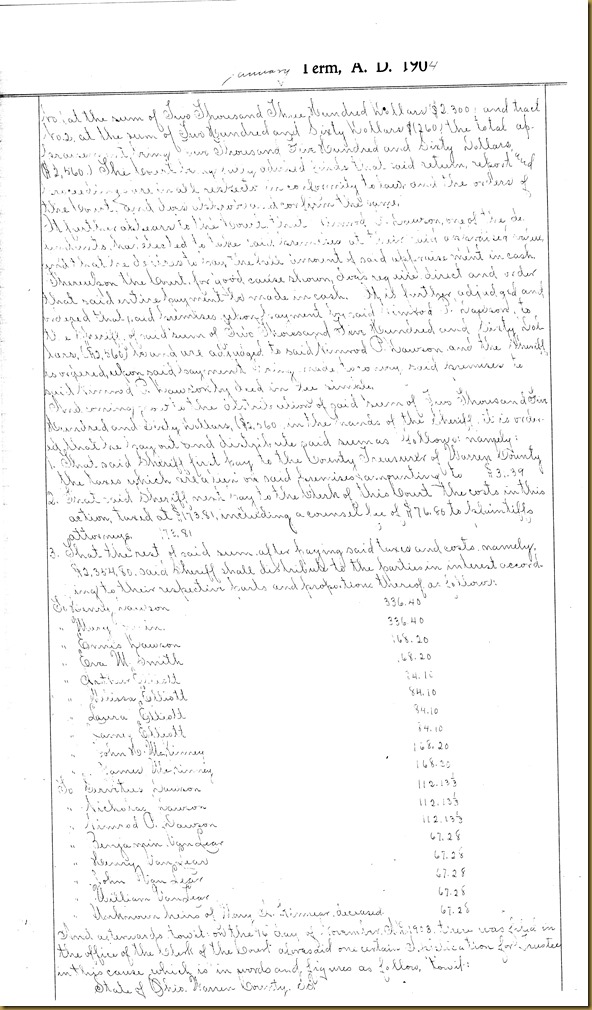 January Term, A. D. 1904
at the sum of Two Thousand Three Hundred Dollars $2300; and tract
No 2, at the sum of Two Hundred and Sixty Dollars $260, the total ap-
being Two Thousand Five Hundred and Sixty Dollars,
$2,560.) The Court finds that said return, report and
proceedings are in all respects in conformity to law and the orders of
the Court and does confirm the same.
It further appears to the Court that Nimrod P. Lawson, one of the de
fendants, has elected to take said premises at their said appraised value,
and that he desires to pay the full amount of said appraisement in cash
Thereupon the Court, for good cause shown, does require direct and order
that said entire payment be made in cash. It is further adjudged and
ordered that said premises upon payment by said Nimrod P. Lawson, to
the Sheriff, of said sum of Two Thousand Five Hundred and Sixty Dol-
lars, ($2,560) be and are adjudged to said Nimrod P. Lawson and the Sheriff
is ordered, upon said payment being made to convey said premises to
said Nimrod P. Lawson by deed in fee simple.
And coming to the distribution of said sum of Two Thousand Five
Hundred and Sixty Dollars, ($2,560, in the hands of the Sheriff, it is order-
ed, that he pay out and distribute said sum as follows: namely:
1. That said Sheriff first pay to the County Treasurer of Warren County
the taxes which are a lien on said premises amounting to
2. That said Sheriff next pay to the Clerk of this Court the costs in this
action, taxed at $173.81, including a counsel fee of $76.80 to plaintiffs
attorneys. 173.81
3. That the rest of said sum, after paying said taxes and costs, namely,
said Sheriff shall distribute to the parties in interest accord-
ing to their respective parts and proportions thereof as follows:
To Henry Lawson 336.40
" Mary 336.40
" Ennis Lawson 168.20
" Eva M. Smith 168.20
" Arthur Elliott 84.10
" Melissa Elliott 84.10
" Laura Elliott 84.10
" James Elliott 84.10
" John McKinney 168.20
" James McKinney 168.20
To Lawson 112.13⅓
" Nicholas Lawson 112.13⅓
" Nimrod P. Lawson 112.13⅓
" Benjamin VanLear 67.28
" Henry VanLear 67.28
" John VanLear 67.28
" William VanLear 67.28
" Unknown heirs of Mary deceased 67.28
And afterwards towit: on the day of November, A.D. 1903, there was filed in
the office of the Clerk of the Court aforesaid one certain Application for
in this cause, which is in words and figures as follow, towit:
State of Ohio, Warren County, SS